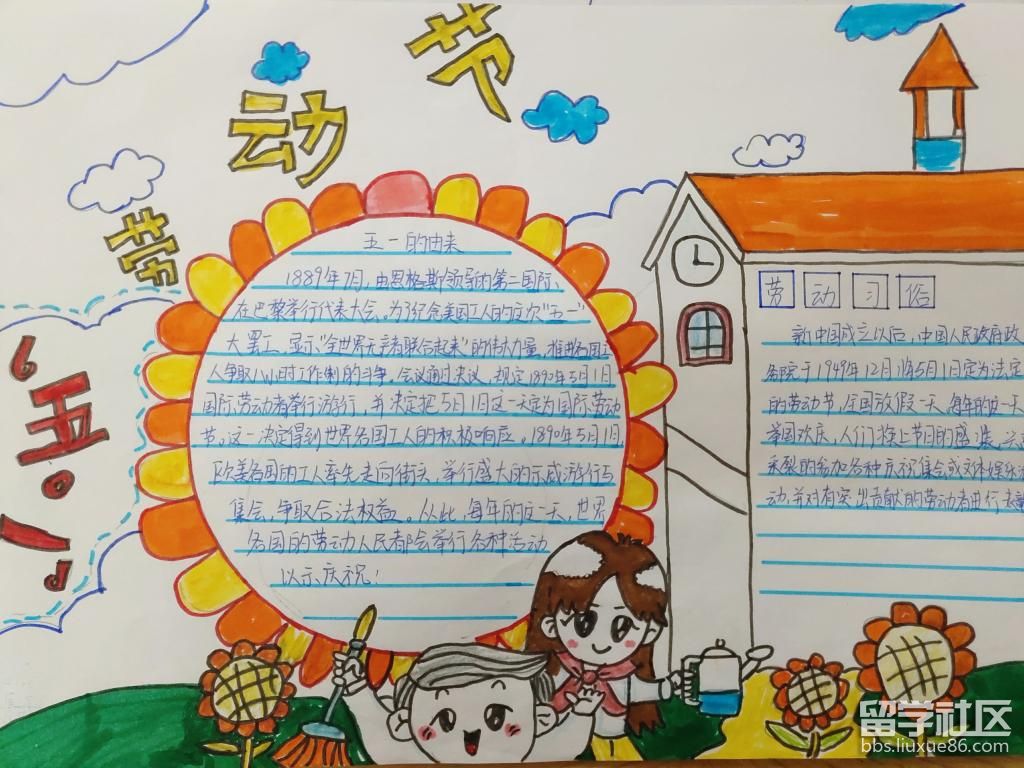 劳动节
“五·一”
五一的由来
1889年7月,由恩格斯领导的第二国际、
在巴黎举行代表大会。为了纪念美国工人的这次“五一”
大罢工,显示“全世界无产者联合起来”的伟大力量,推进各国工
人争取八小时工作制的斗争,会议通过决议,规定1890年5月1日
国际劳动者举行游行,并决定把5月1日这一天定为国际劳动
节。这一决定得到世界各国工人的积极响应。1890年5月1日,
欧美各国的工人率先走向街头,举行盛大的示威游行与
集会,争取合法权益。从此,每年的这一天,世界
各国的劳动人民都会举行各种活动
以示庆祝!
劳动习俗
新中国成立以后,中国人民政府政
务院于1949年12月将5月1日定为法定
的劳动节,全国放假一天。每年的这一天
举国欢庆,人们换上节日的盛
采烈的参加各种庆祝集会或文体娱乐
动,并对有突出贡献的劳动者进行表
留学社区
bbs.liuxue86.com